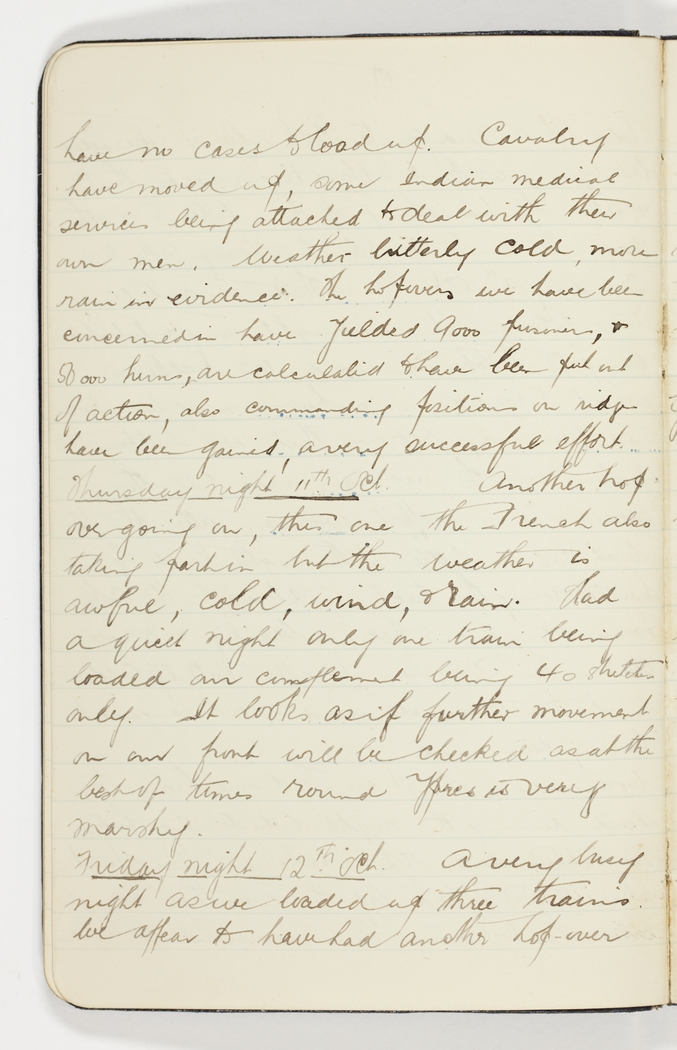 have no cases to load up. Cavalry
have moved up, some Indian medical
services being attached to deal with their
own men. Weather bitterly cold, more
rain in evidence. The hopovers we have been
concerned in have yielded 9000 prisoners, &
50000 huns, are calculated to have been put out
of action, also commanding positions on ridge
have been gained, a very successful effort.
Thursday night 11th Oct. Another hop
over going on, this one the French also
taking part in but the weather is
awful, cold, wind, & rain. Had
a quiet night only one train being
loaded our complement being 40 stretcher
only. It looks as if further movement
on our front will be checked as at the
best of times round Ypres is very
marshy.
Friday night 12th Oct. A very busy
night as we loaded up three trains.
We appear to have had another hop-over